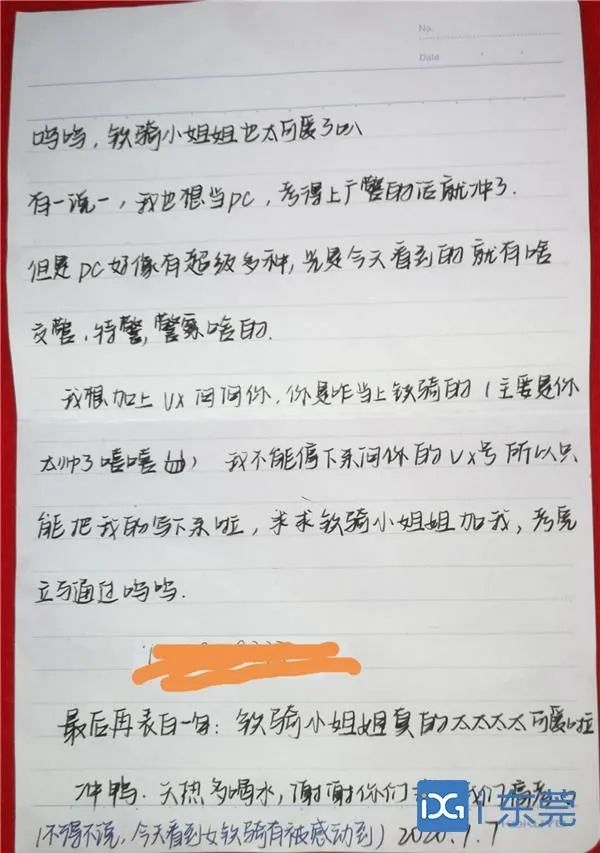 No.
Date
呜呜，铁骑小姐姐也太可爱了叭
有一说一，我也想当PC，考得上广警的话就冲了.
但是PC好像有超级多种，光是今天看到的就有啥
交警，特警，警察啥的.
我想加上VX问问你，你是咋当上铁骑的（主要是你
太帅了嘻嘻） 我不能停下来问你的VX号所以只
能把我的写下来啦，求求铁骑小姐姐加我，考完
立马通过呜呜.
最后再表白一句：铁骑小姐姐真的太太太太可爱啦
冲鸭.天热多喝水，谢谢你们 我们高考
i东莞
(不得不说，今天看到女铁骑有被感动到) 2020.7.7